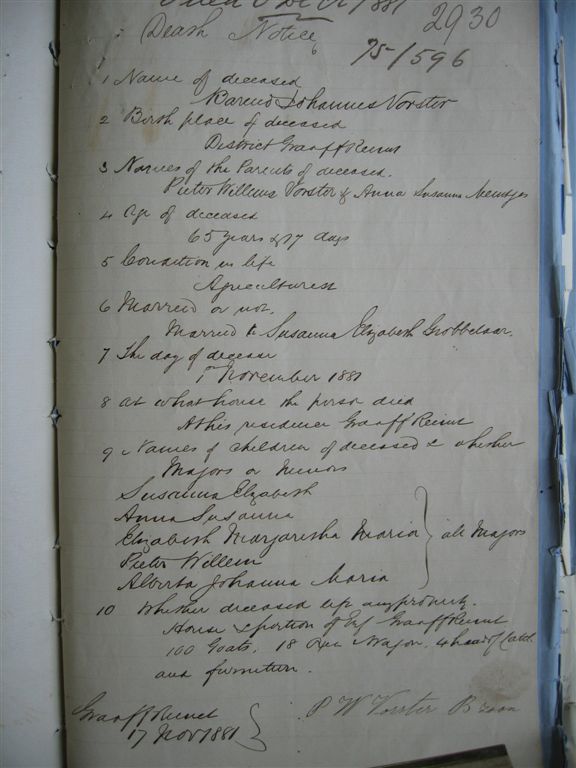 Filed 5 Dec 1881
2930
Death Notice
75/596
1 Name of deceased
Barend Johannes Vorster
2 Birth place of deceased
District Graaff Reinet
3 Names of the Parents of deceased.
Pieter Willem Vorster & Anna Susanna
4 Age of deceased
65 years & 17 days
5 Condition in life
Agriculturist
6 Married or not.
Married to Susanna Elizabeth Grobbelaar.
7 The day of decease
1st November 1881
8 At what house the person died
At his residence Graaff Reinet
9 Names of children of deceased & whether
Majors or Minors
Susanna Elizabeth
Anna Susanna
Elizabeth Margaretha Maria } all Majors
Pieter Willem
Alberta Johanna Maria
10 Whether deceased left any property.
House & portion of Erf Graaff Reinet
100 Goats, 18 Oxen Wagon, 4 head of Cattle
and furniture.
Graaff Reinet
17 Nov 1881 }
P W Vorster